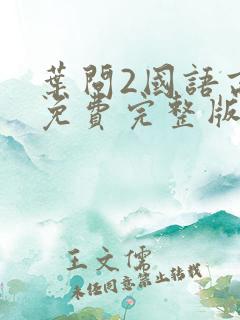 葉問2國語高
免費完整版
王文儒
未经同意禁止转载